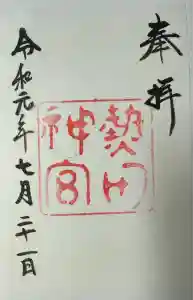 奉拝
熱田
神宮
令和元年七月二十一日